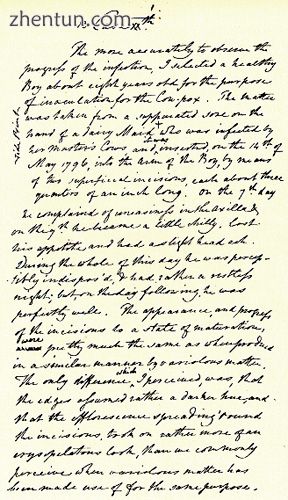 zhentun.com
th
The more accurately to observe the
progress of the infection, I selected a healthy
Boy about eight years old for the purpose
of inoculation for the Cow-pox. The matter
was taken from a suppurated sore on the
hand of a dairy Maid who was infected by
her Masters Cows and it was inserted, on the 14th of
May 1796, into the arm of the Boy, by means
of two superficial incisions, each about three
quarters of an inch long. On the 7th day
he complained of uneasiness in the axilla &
on the 9th he became a little chilly, lost
his appetite and had a slight head ach.
During the whole of this day he was percep-
tibly indispos'd, & had rather a restless
night; but, on the day following, he was
perfectly well. The appearance, and progress
of the incisions to a state of maturation,
were pretty much the same as when produced
in a similar manner by variolous matter.
The only difference, which I perceived, was, that
the edges assumed rather a darker hue, and
that the efflorescence spreading round
the incisions, took on rather more of an
erysipelatous look, than we commonly
perceive when variolous matter has
been made use of for the same purpose.